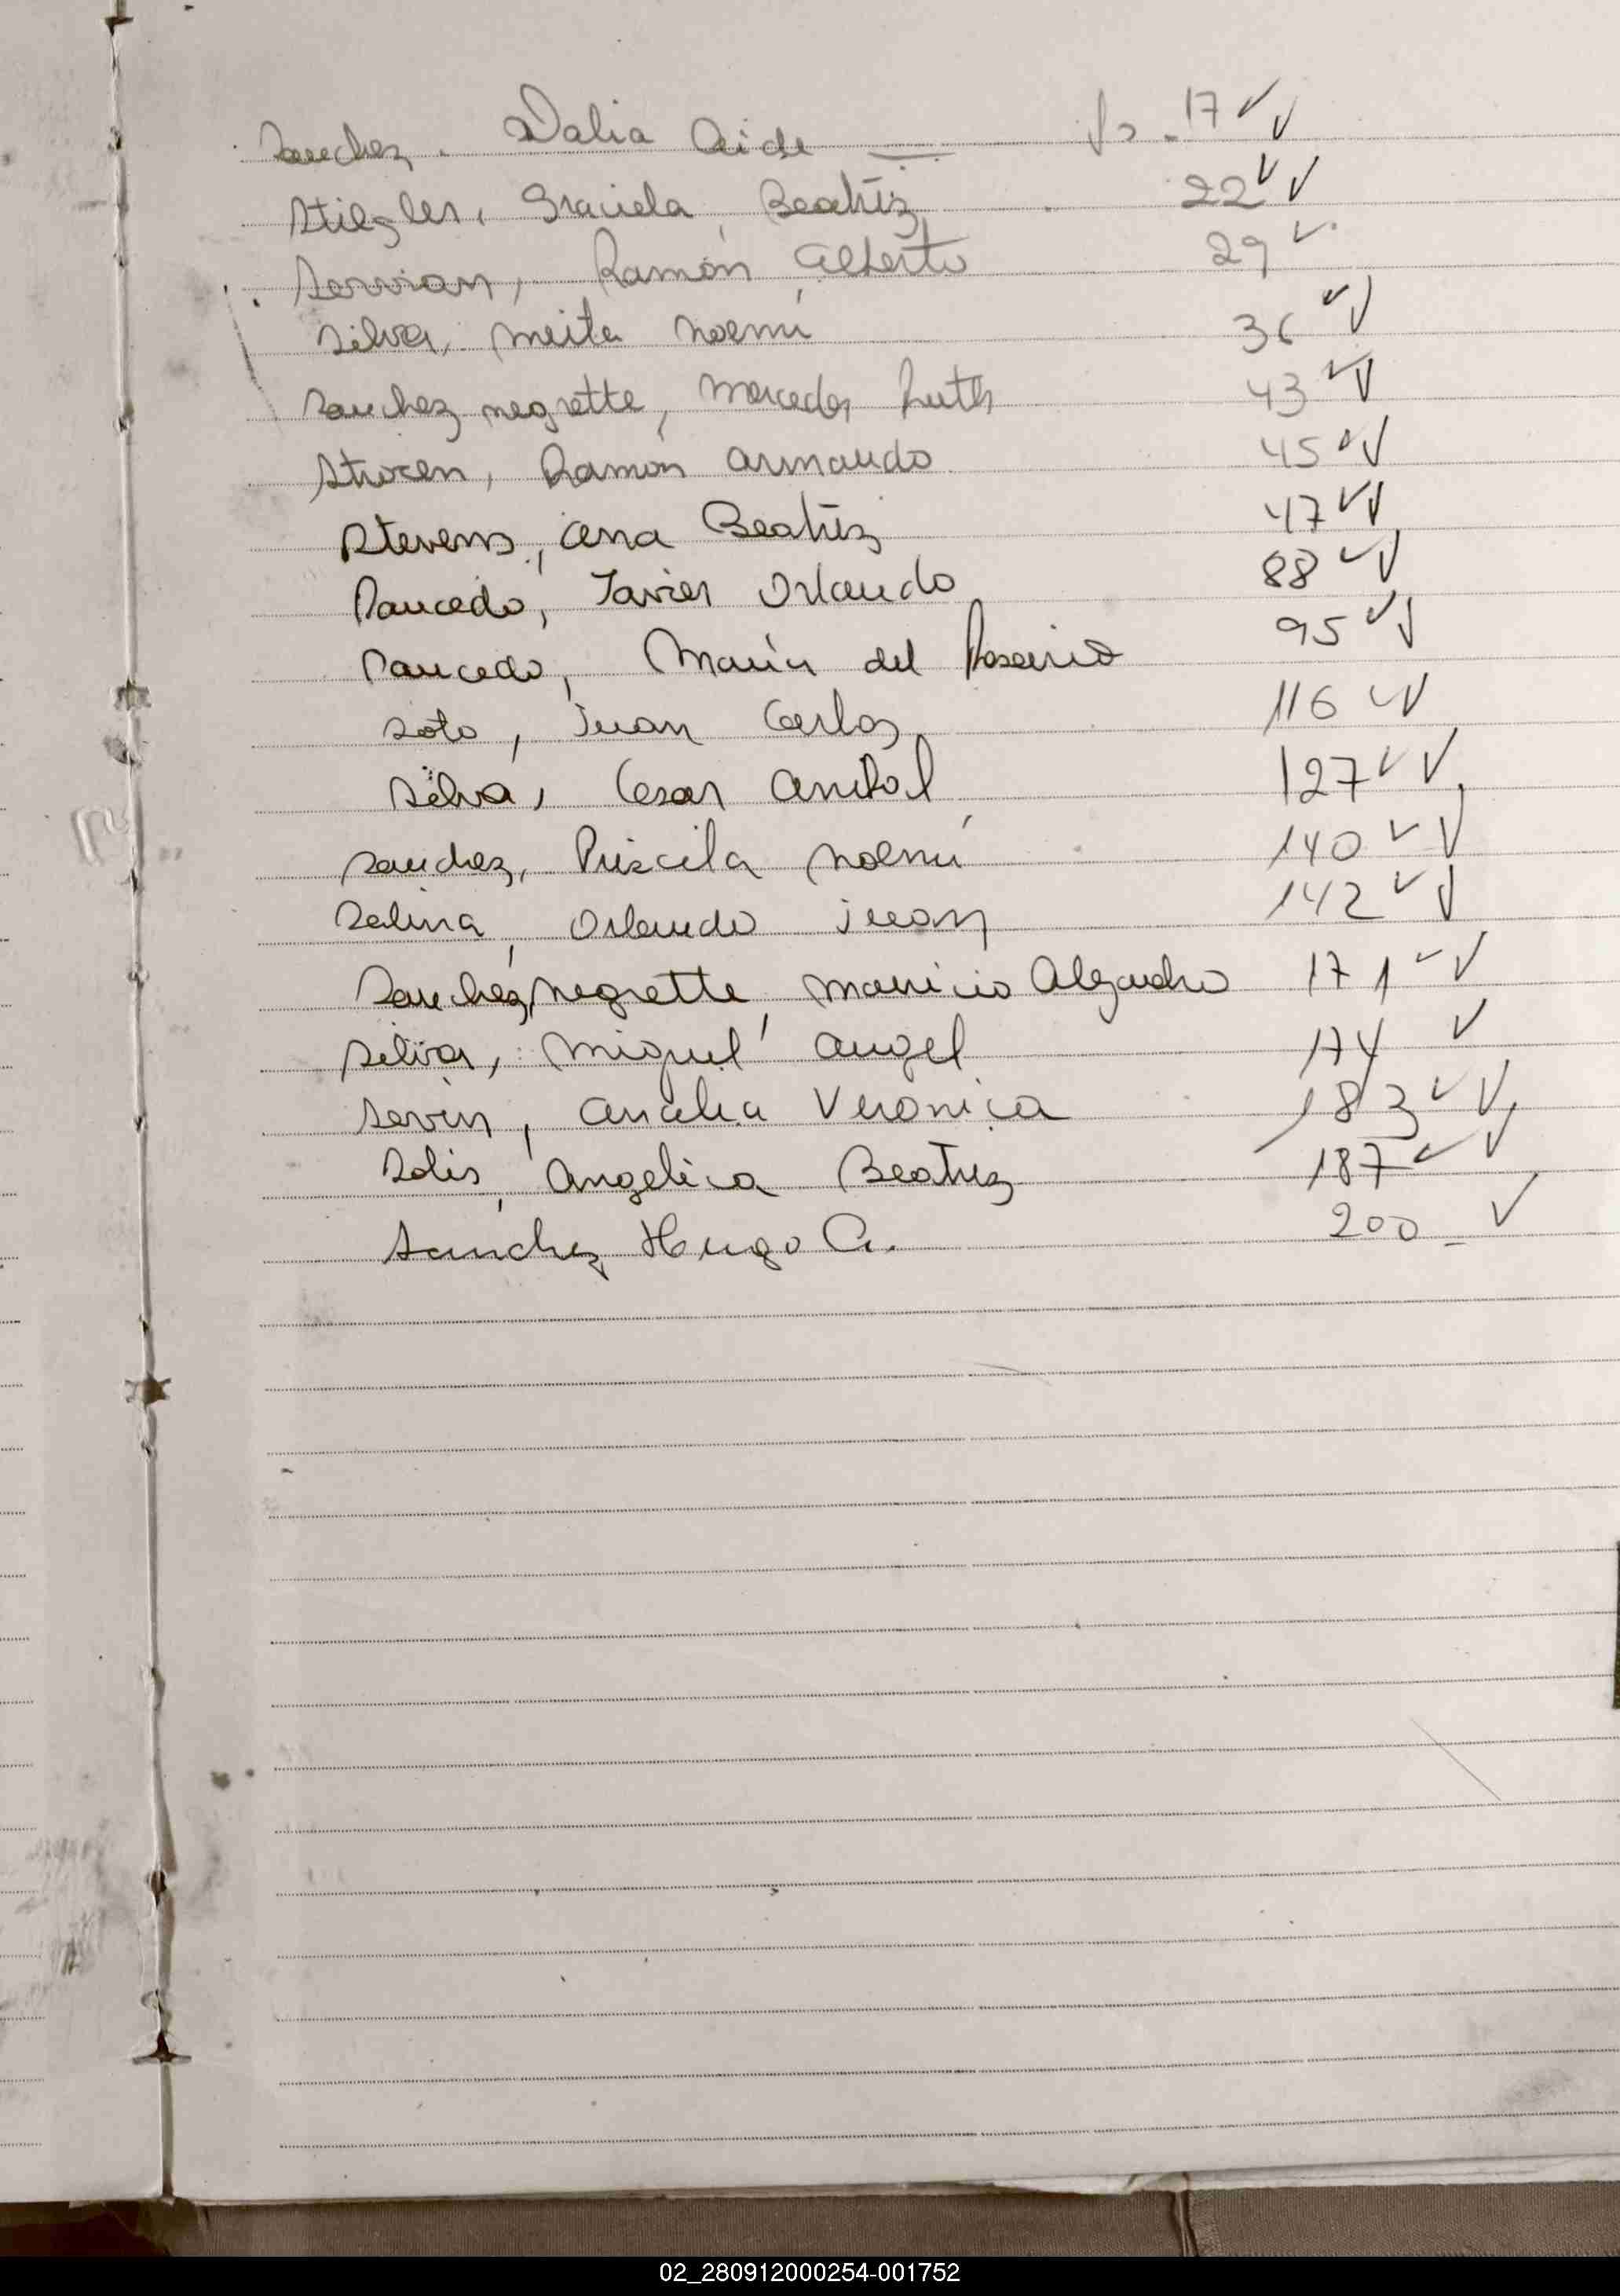 Sanchez. Dalia Aide — fo - 17 ✓✓
Stiegler, Graciela Beatriz 22 ✓✓
Servian, Ramón Alberto 29 ✓
Silva, Meita Noemi 36 ✓✓
Sanchez negrette, Mercedes Ruth 43 ✓✓
Strocen, Ramón Armando 45 ✓✓
Stevens, Ana Beatriz 47 ✓✓
Saucedo, Javier Orlando 88 ✓✓
Saucedo, María del Rosario 95 ✓✓
Soto, Juan Carlos 116 ✓✓
Silva, Cesar Anibal 127 ✓✓
Sanchez, Priscila Noemí 140 ✓✓
Salina, Orlando Juan 142 ✓✓
Sanchez negrette, Mauricio Alejandro 171 ✓✓
Silva, Miguel Angel 174 ✓
Sevin, Analia Veronica 183 ✓✓
Solis, Angelica Beatriz 187 ✓✓
Sanchez Hugo A. 200 - ✓
02_280912000254-001752